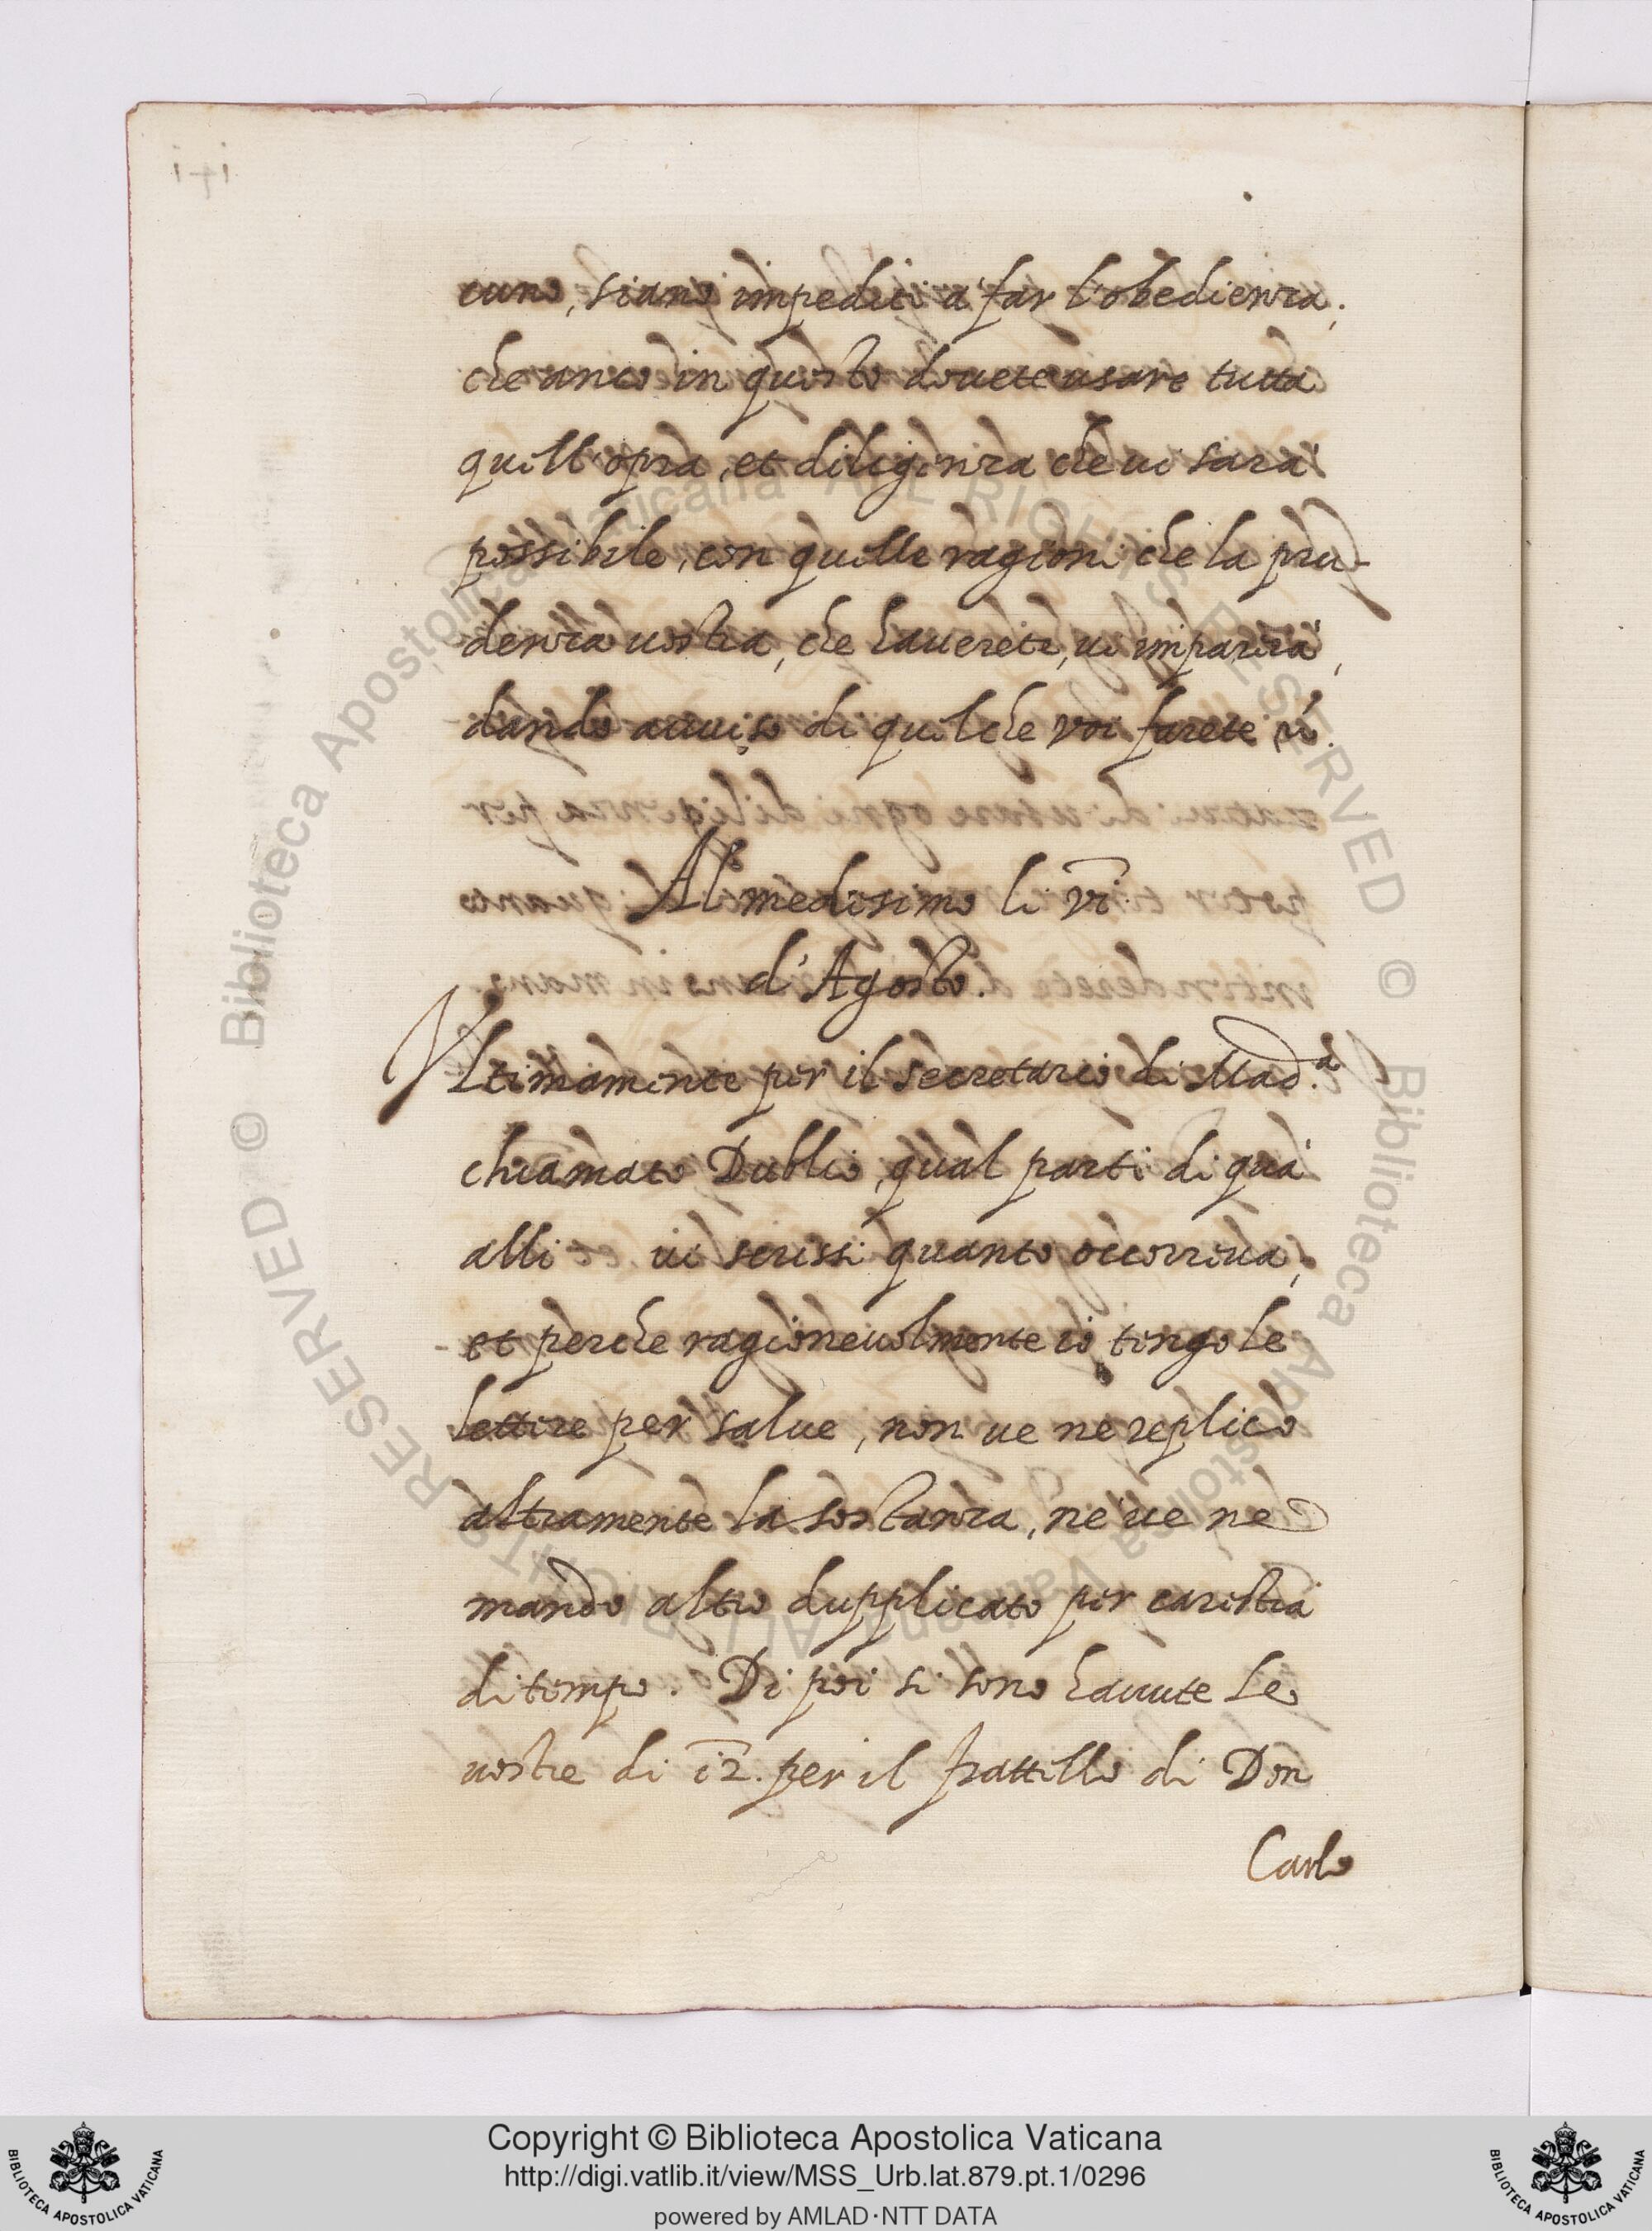 cuno, siano impediti à far l'obedienza;
che anco in questo douete usare tutta
quell'opra, et diligenza che ui sarà
possibile, con quelle ragioni che la pru-
denza uostra, che hauerete, ui imparerà,
dando auuiso di quel che voi farete
Al medesimo li vi.
d'Agosto.
Vltimamente per il secretario di Mad.a
chiamato Dublio, qual parti di quà
alli ui scrissi quanto occorreua;
et perche ragioneuolmente io tengo le
lettere per salue, non ue ne replico
altramente la sostanza, ne ue ne
mando altro dupplicato per carestia
di tempo. Di poi si sono hauute le
uostre di i2. per il frattello di Don
Carlo
Copyright © Biblioteca Apostolica Vaticana
http://digi.vatlib.it/view/MSS_Urb.lat.879.pt.1/0296
powered by AMLAD·NTT DATA
BIBLIOTECA APOSTOLICA VATICANA
BIBLIOTECA APOSTOLICA VATICANA